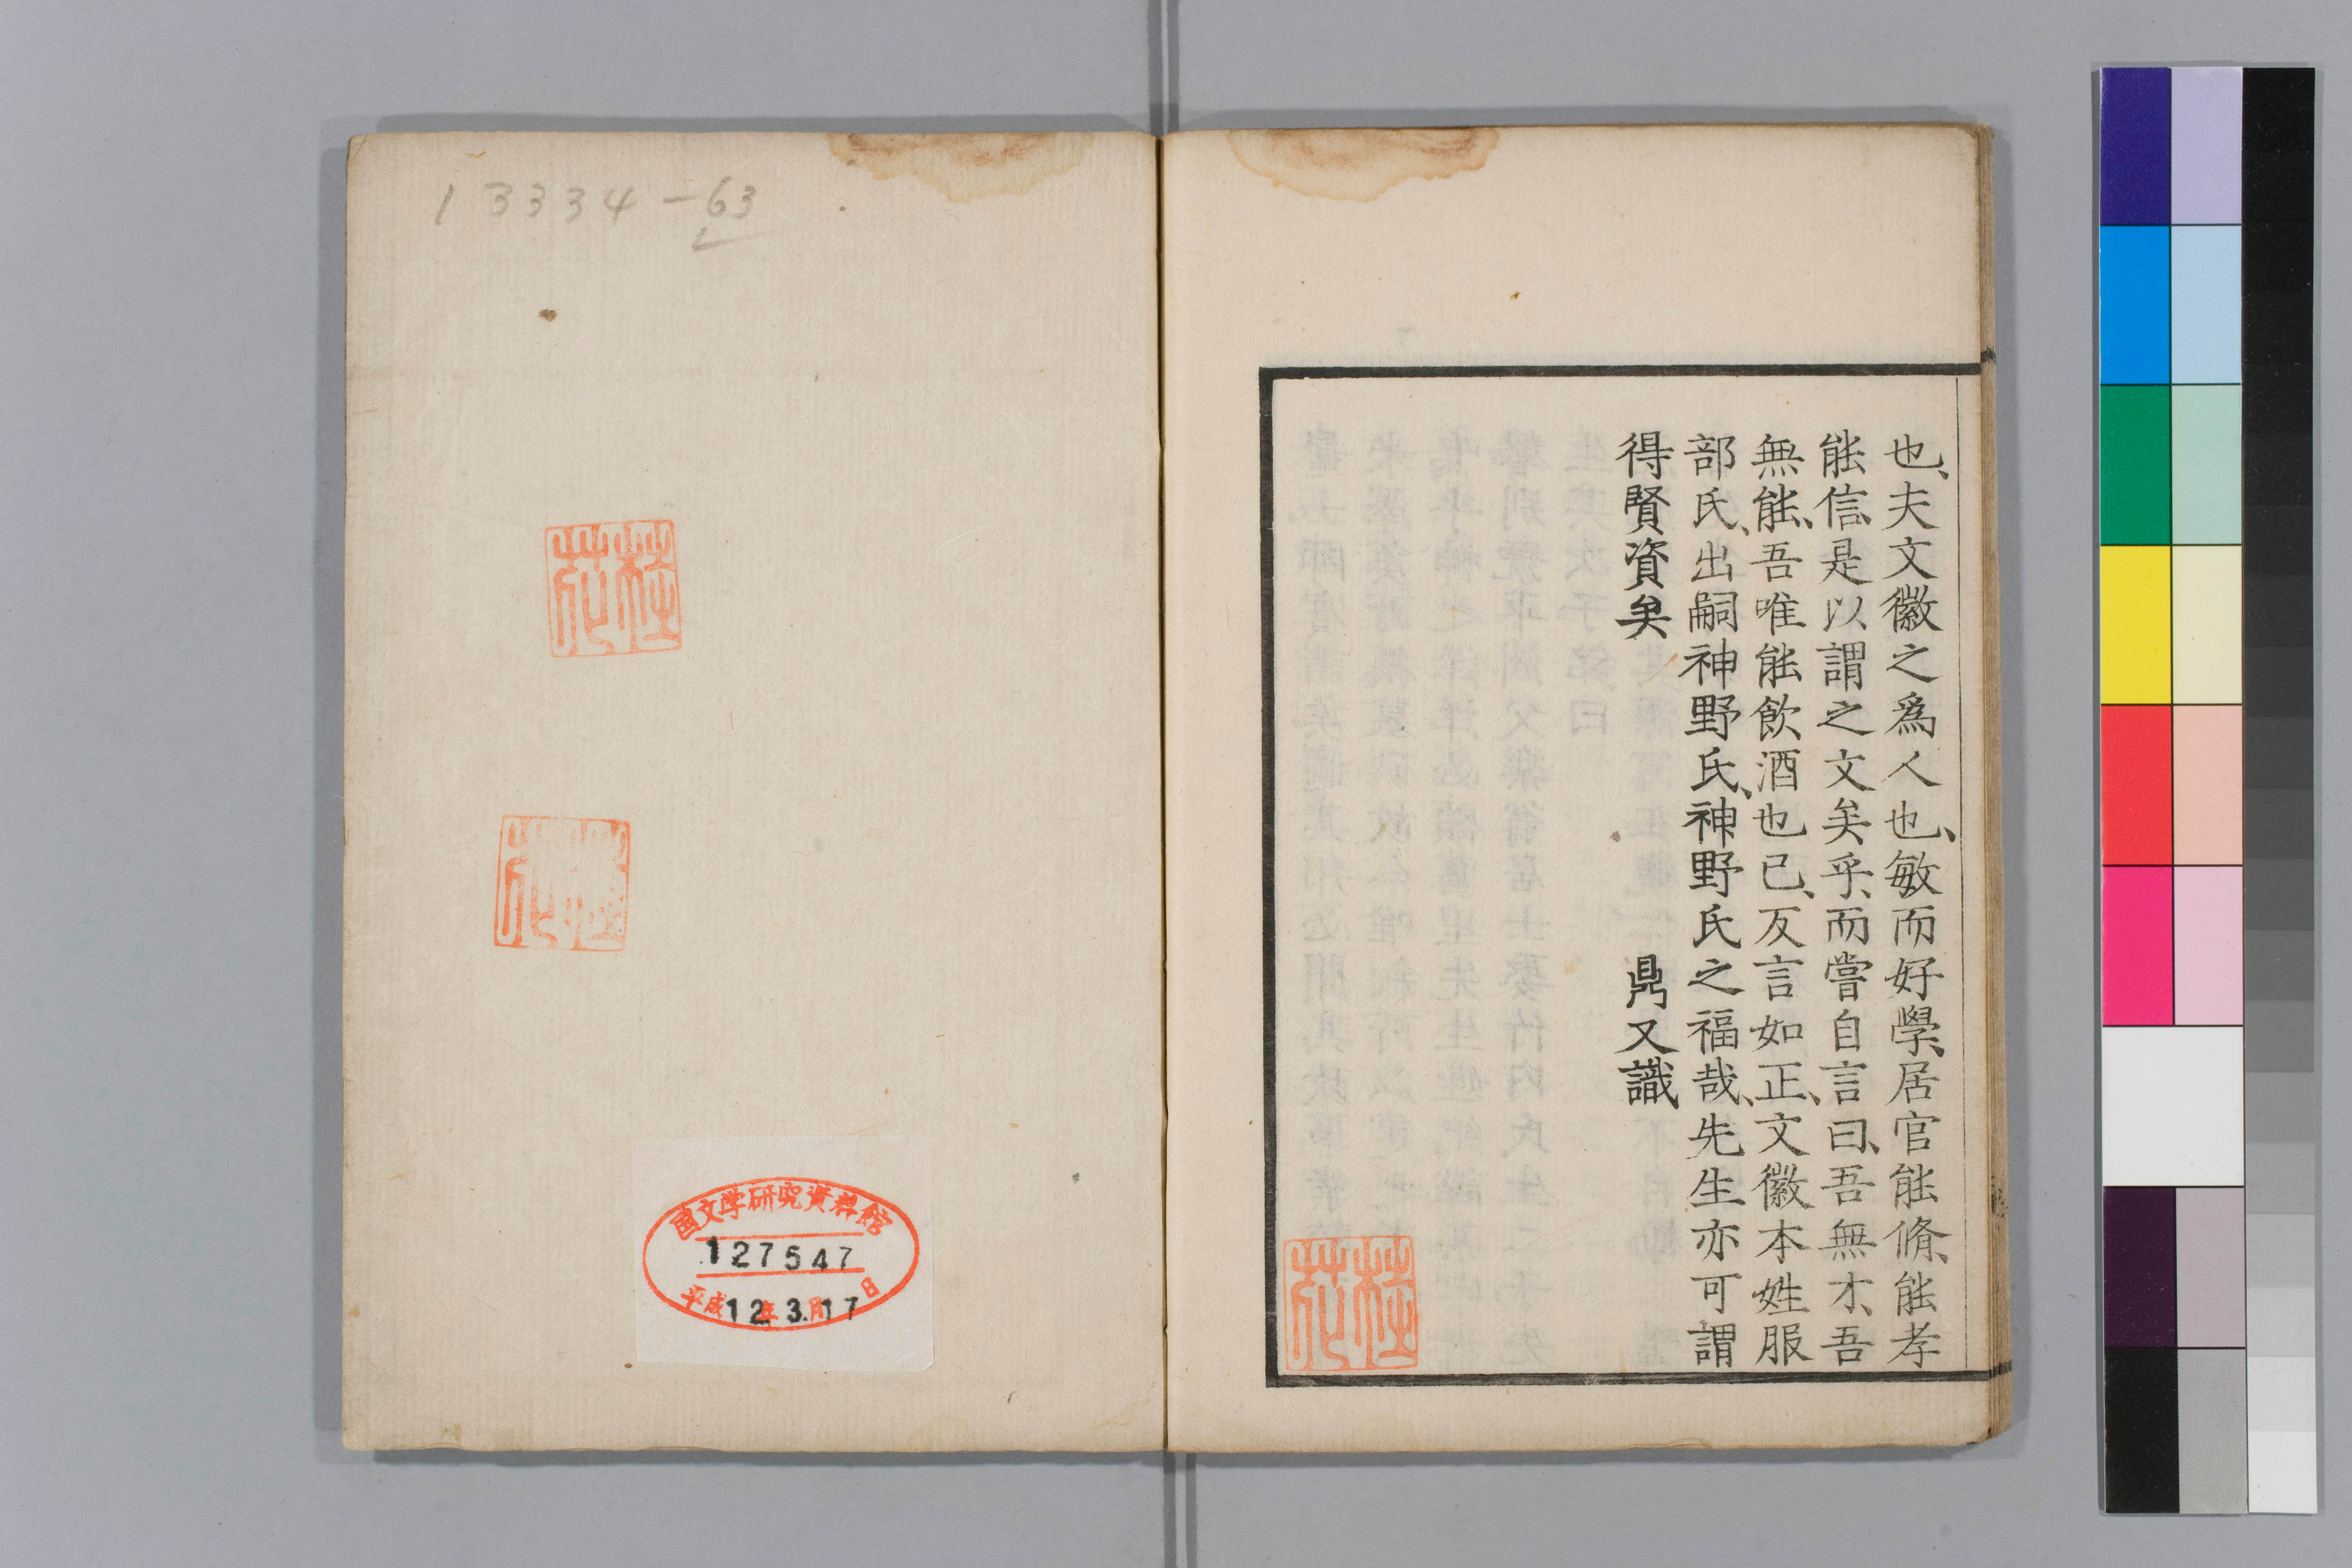 也、夫文徽之為人也、敏而好學、居官能脩、能孝
能信、是以謂之文矣乎、而嘗自言曰、吾無才、吾
無能、吾唯能飲酒也已、反言如正、文徽本姓服
部氏、出嗣神野氏、神野氏之福哉、先生亦可謂
得賢資矣
鼎又識
13334-63
国文学研究資料館
127547
平成12年3月17日